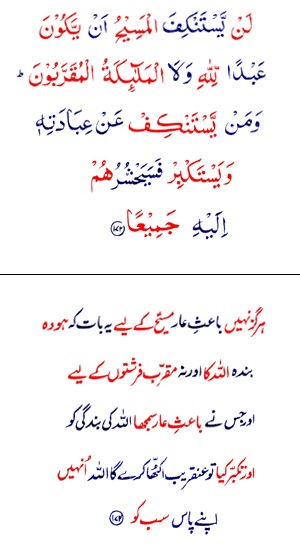 لَنْ يَّسْتَنْكِفَ الْمَسِيْحُ اَنْ يَّكُوْنَ
عَبْدًا لِّلّٰهِ وَلَا الْمَلٰٓئِكَةُ الْمُقَرَّبُوْنَ ؕ
وَمَنْ يَّسْتَنْكِفْ عَنْ عِبَادَتِهٖ
وَيَسْتَكْبِرْ فَسَيَحْشُرُهُمْ
اِلَيْهِ جَمِيْعًا ﴿۱۷۲﴾
ہرگز نہیں باعثِ عار مسیح کے لیے یہ بات کہ ہو وہ
بندہ اللہ کا اور نہ مقرّب فرشتوں کے لیے
اور جس نے باعثِ عار سمجھا اللہ کی بندگی کو
اور تکبّر کیا تو عنقریب اکٹھا کرے گا اللہ اُنہیں
اپنے پاس سب کو ﴿۱۷۲﴾